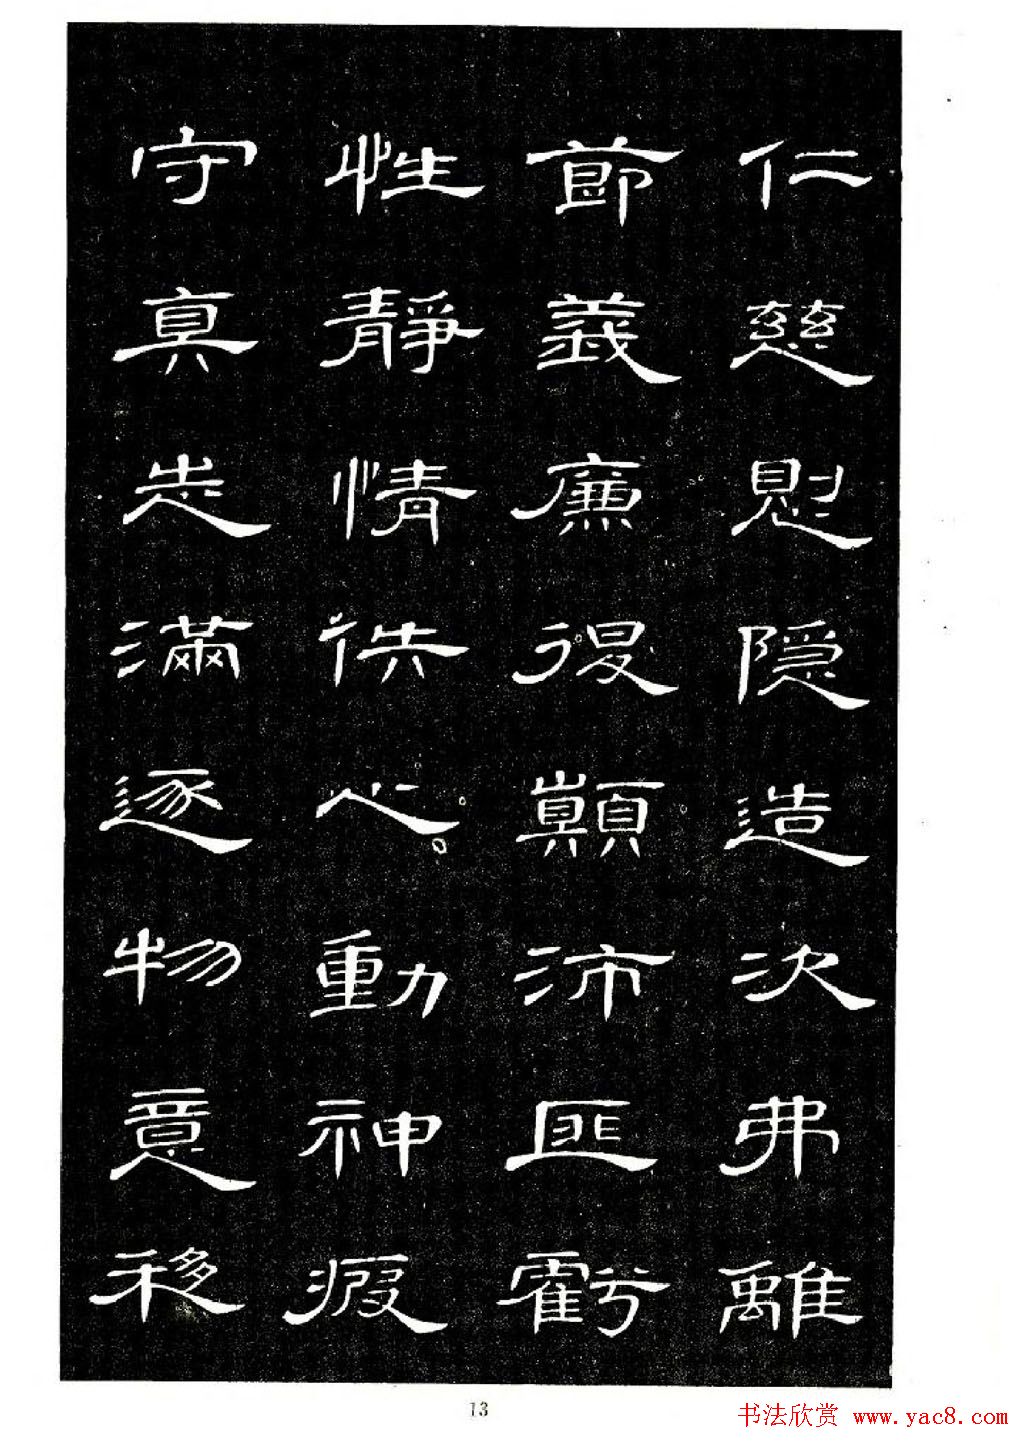 仁慈惻隱造次弗離
節義廉退顛沛匪虧
性靜情佚心動神疲
守真志滿逐物意移
13
书法欣赏 www.yac8.com